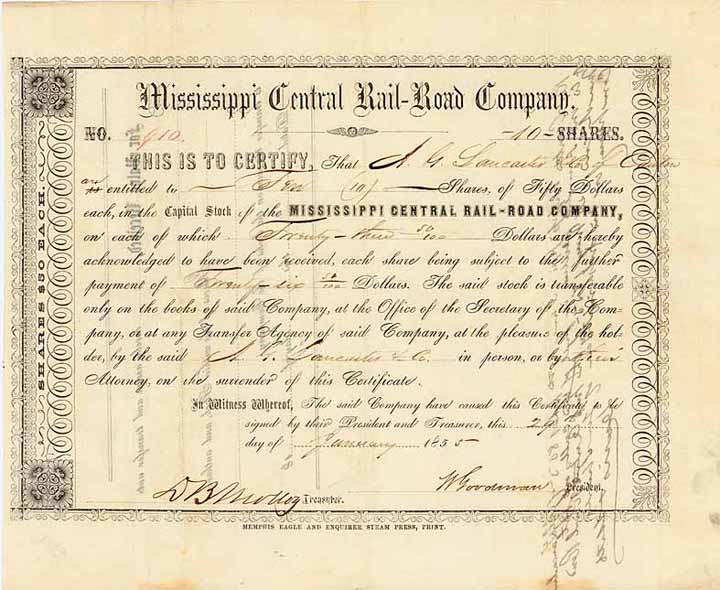 Mississippi Central Rail-Road Company.
NO. 910. 10 SHARES.
THIS IS TO CERTIFY, That A. G. Lancaster & Co of
are
is entitled to Ten (10) Shares, of Fifty Dollars
each, in the Capital Stock of the MISSISSIPPI CENTRAL RAIL-ROAD COMPANY,
on each of which Twenty-three 50/100 Dollars are hereby
acknowledged to have been received, each share being subject to the further
payment of Twenty-six 50/100 Dollars. The said stock is transferable
only on the books of said Company, at the Office of the Secretary of the Com-
pany, or at any Transfer Agency of said Company, at the pleasure of the hol-
der, by the said A. G. Lancaster & Co. in person, or by their
Attorney, on the surrender of this Certificate.
In Witness Whereof, The said Company have caused this Certificate to be
signed by their President and Treasurer, this 29
day of January 1855
Treasurer. W Goodman President.
SHARES $50 EACH.
MEMPHIS EAGLE AND ENQUIRER STEAM PRESS, PRINT.